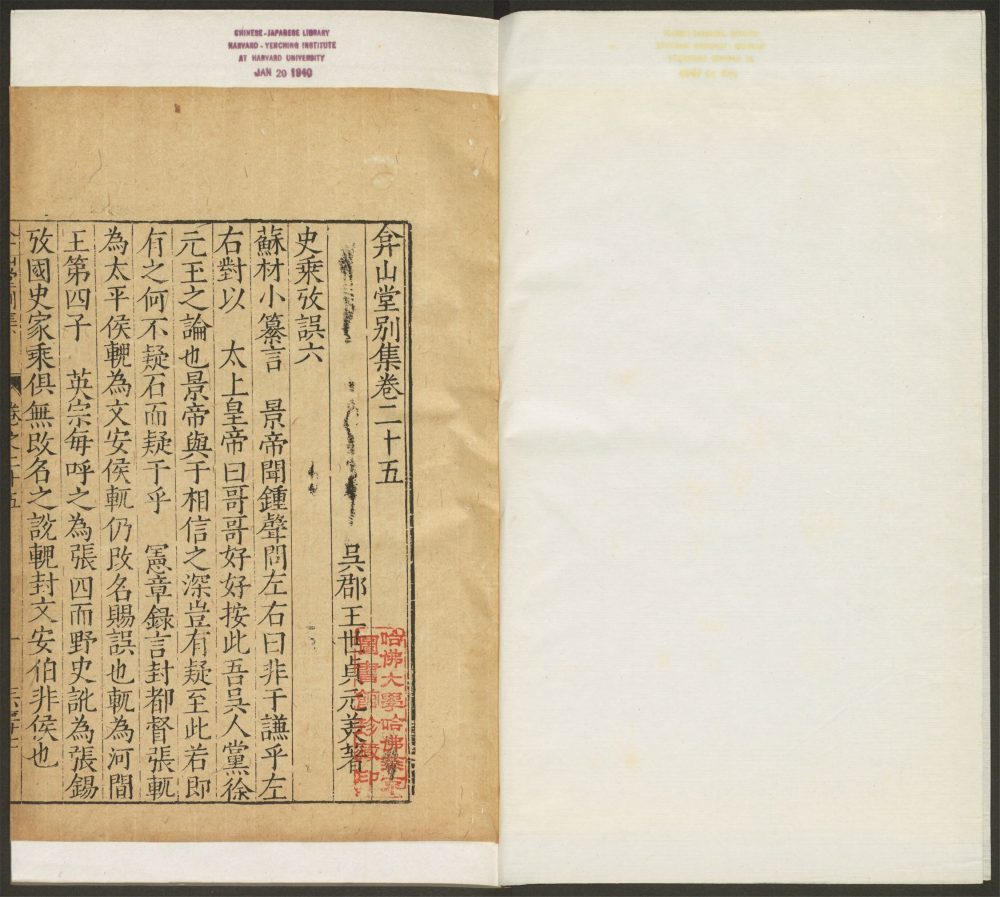 CHINESE-JAPANESE LIBRARY
HARVARD-YENCHING INSTITUTE
AT HARVARD UNIVERSITY
JAN 20 1940
弇山堂别集卷二十五
吳郡王世貞元美著
史乘攷誤六
蘇材小纂言　景帝聞鍾聲問左右曰非于謙乎左
右對以　太上皇帝曰哥哥好好按此吾吳人黨徐
元玉之論也景帝與于相信之深豈有疑至此若即
有之何不疑石而疑于乎　憲章錄言封都督張軏
為太平侯輗為文安侯軏仍改名賜誤也軏為河間
王第四子　英宗每呼之為張四而野史訛為張錫
攷國史家乘俱無改名之説輗封文安伯非侯也
卷之二十五
哈佛大學哈佛燕京
圖書館珍藏印